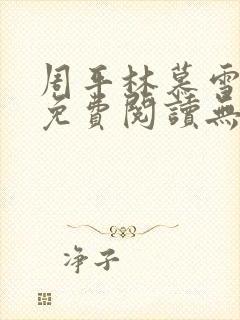 周平林慕雪
免費閱讀無
净子